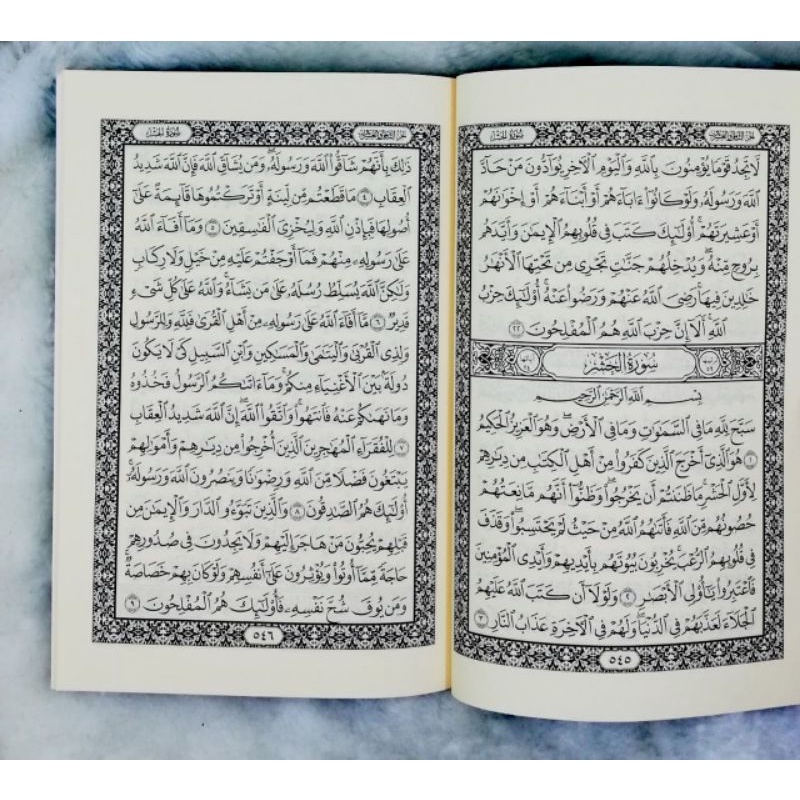 الجزء الثامن والعشرون
سورة الحشر
لَّا تَجِدُ قَوْمًا يُؤْمِنُونَ بِٱللَّهِ وَٱلْيَوْمِ ٱلْءَاخِرِ يُوَآدُّونَ مَنْ حَآدَّ
ٱللَّهَ وَرَسُولَهُۥ وَلَوْ كَانُوٓا۟ ءَابَآءَهُمْ أَوْ أَبْنَآءَهُمْ أَوْ إِخْوَٰنَهُمْ
أَوْ عَشِيرَتَهُمْ ۚ أُو۟لَٰٓئِكَ كَتَبَ فِى قُلُوبِهِمُ ٱلْإِيمَٰنَ وَأَيَّدَهُم
بِرُوحٍ مِّنْهُ ۖ وَيُدْخِلُهُمْ جَنَّٰتٍ تَجْرِى مِن تَحْتِهَا ٱلْأَنْهَٰرُ
خَٰلِدِينَ فِيهَا ۚ رَضِىَ ٱللَّهُ عَنْهُمْ وَرَضُوا۟ عَنْهُ ۚ أُو۟لَٰٓئِكَ حِزْبُ
ٱللَّهِ ۚ أَلَآ إِنَّ حِزْبَ ٱللَّهِ هُمُ ٱلْمُفْلِحُونَ ٢٢
سُورَةُ الحَشْرِ
بِسْمِ ٱللَّهِ ٱلرَّحْمَٰنِ ٱلرَّحِيمِ
سَبَّحَ لِلَّهِ مَا فِى ٱلسَّمَٰوَٰتِ وَمَا فِى ٱلْأَرْضِ ۖ وَهُوَ ٱلْعَزِيزُ ٱلْحَكِيمُ
١ هُوَ ٱلَّذِىٓ أَخْرَجَ ٱلَّذِينَ كَفَرُوا۟ مِنْ أَهْلِ ٱلْكِتَٰبِ مِن دِيَٰرِهِمْ
لِأَوَّلِ ٱلْحَشْرِ ۚ مَا ظَنَنتُمْ أَن يَخْرُجُوا۟ ۖ وَظَنُّوٓا۟ أَنَّهُم مَّانِعَتُهُمْ
حُصُونُهُم مِّنَ ٱللَّهِ فَأَتَىٰهُمُ ٱللَّهُ مِنْ حَيْثُ لَمْ يَحْتَسِبُوا۟ ۖ وَقَذَفَ
فِى قُلُوبِهِمُ ٱلرُّعْبَ ۚ يُخْرِبُونَ بُيُوتَهُم بِأَيْدِيهِمْ وَأَيْدِى ٱلْمُؤْمِنِينَ
فَٱعْتَبِرُوا۟ يَٰٓأُو۟لِى ٱلْأَبْصَٰرِ ٢ وَلَوْلَآ أَن كَتَبَ ٱللَّهُ عَلَيْهِمُ
ٱلْجَلَآءَ لَعَذَّبَهُمْ فِى ٱلدُّنْيَا ۖ وَلَهُمْ فِى ٱلْءَاخِرَةِ عَذَابُ ٱلنَّارِ ٣
٥٤٥
الجزء الثامن والعشرون
سورة الحشر
ذَٰلِكَ بِأَنَّهُمْ شَآقُّوا۟ ٱللَّهَ وَرَسُولَهُۥ ۖ وَمَن يُشَآقِّ ٱللَّهَ فَإِنَّ ٱللَّهَ شَدِيدُ
ٱلْعِقَابِ ٤ مَا قَطَعْتُم مِّن لِّينَةٍ أَوْ تَرَكْتُمُوهَا قَآئِمَةً عَلَىٰٓ
أُصُولِهَا فَبِإِذْنِ ٱللَّهِ وَلِيُخْزِىَ ٱلْفَٰسِقِينَ ٥ وَمَآ أَفَآءَ ٱللَّهُ
عَلَىٰ رَسُولِهِۦ مِنْهُمْ فَمَآ أَوْجَفْتُمْ عَلَيْهِ مِنْ خَيْلٍ وَلَا رِكَابٍ
وَلَٰكِنَّ ٱللَّهَ يُسَلِّطُ رُسُلَهُۥ عَلَىٰ مَن يَشَآءُ ۚ وَٱللَّهُ عَلَىٰ كُلِّ شَىْءٍ
قَدِيرٌ ٦ مَّآ أَفَآءَ ٱللَّهُ عَلَىٰ رَسُولِهِۦ مِنْ أَهْلِ ٱلْقُرَىٰ فَلِلَّهِ وَلِلرَّسُولِ
وَلِذِى ٱلْقُرْبَىٰ وَٱلْيَتَٰمَىٰ وَٱلْمَسَٰكِينِ وَٱبْنِ ٱلسَّبِيلِ كَىْ لَا يَكُونَ
دُولَةًۢ بَيْنَ ٱلْأَغْنِيَآءِ مِنكُمْ ۚ وَمَآ ءَاتَىٰكُمُ ٱلرَّسُولُ فَخُذُوهُ
وَمَا نَهَىٰكُمْ عَنْهُ فَٱنتَهُوا۟ ۚ وَٱتَّقُوا۟ ٱللَّهَ ۖ إِنَّ ٱللَّهَ شَدِيدُ ٱلْعِقَابِ
٧ لِلْفُقَرَآءِ ٱلْمُهَٰجِرِينَ ٱلَّذِينَ أُخْرِجُوا۟ مِن دِيَٰرِهِمْ وَأَمْوَٰلِهِمْ
يَبْتَغُونَ فَضْلًا مِّنَ ٱللَّهِ وَرِضْوَٰنًا وَيَنصُرُونَ ٱللَّهَ وَرَسُولَهُۥٓ ۚ
أُو۟لَٰٓئِكَ هُمُ ٱلصَّٰدِقُونَ ٨ وَٱلَّذِينَ تَبَوَّءُو ٱلدَّارَ وَٱلْإِيمَٰنَ مِن
قَبْلِهِمْ يُحِبُّونَ مَنْ هَاجَرَ إِلَيْهِمْ وَلَا يَجِدُونَ فِى صُدُورِهِمْ
حَاجَةً مِّمَّآ أُوتُوا۟ وَيُؤْثِرُونَ عَلَىٰٓ أَنفُسِهِمْ وَلَوْ كَانَ بِهِمْ خَصَاصَةٌ ۚ
وَمَن يُوقَ شُحَّ نَفْسِهِۦ فَأُو۟لَٰٓئِكَ هُمُ ٱلْمُفْلِحُونَ ٩
٥٤٦